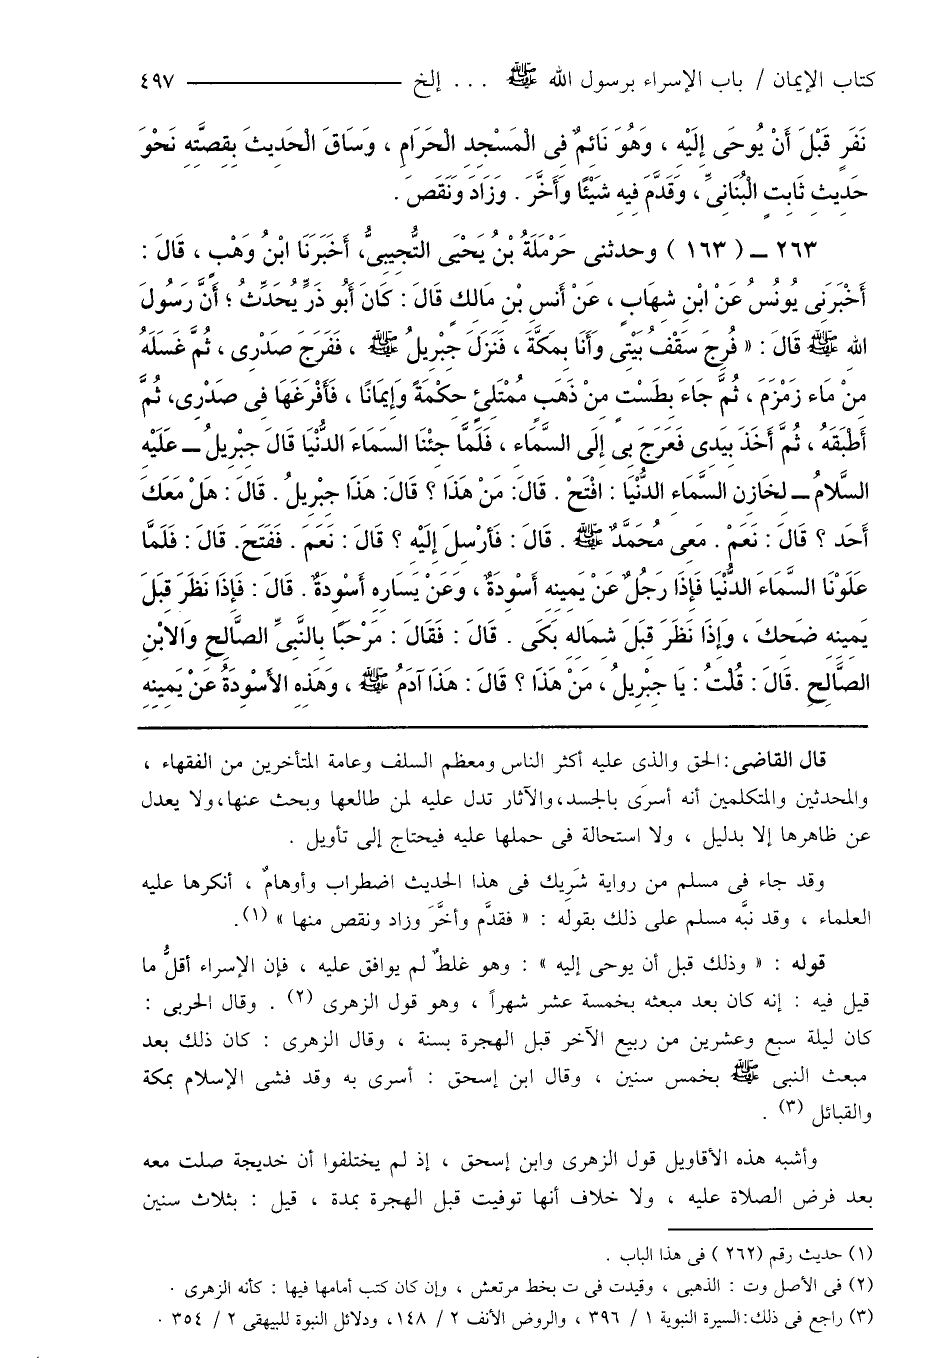 كتاب الإيمان / باب الإسراء برسول الله ﷺ ... إلخ ــــــــــ ٤٩٧
نَفَرٍ قَبْلَ أَنْ يُوحَى إِلَيْهِ ، وَهُوَ نَائِمٌ فِى الْمَسْجِدِ الْحَرَامِ ، وَسَاقَ الْحَدِيثَ بِقِصَّتِهِ نَحْوَ
حَدِيثِ ثَابِتٍ الْبُنَانِىِّ ، وَقَدَّمَ فِيهِ شَيْئًا وَأَخَّرَ . وَزَادَ وَنَقَصَ .
٢٦٣ ـ ( ١٦٣ ) وحدثنى حَرْمَلَةُ بْنُ يَحْيَى التُّجِيبِىُّ، أَخْبَرَنَا ابْنُ وَهْبٍ ، قَالَ :
أَخْبَرَنِى يُونُسُ عَنْ ابْنِ شِهَابٍ ، عَنْ أَنَسِ بْنِ مَالِكٍ قَالَ : كَانَ أَبُو ذَرٍّ يُحَدِّثُ ؛ أَنَّ رَسُولَ
اللهِ ﷺ قَالَ : « فُرِجَ سَقْفُ بَيْتِى وَأَنَا بِمَكَّةَ ، فَنَزَلَ جِبْرِيلُ ﷺ ، فَفَرَجَ صَدْرِى ، ثُمَّ غَسَلَهُ
مِنْ مَاءِ زَمْزَمَ ، ثُمَّ جَاءَ بِطَسْتٍ مِنْ ذَهَبٍ مُمْتَلِئٍ حِكْمَةً وَإِيمَانًا ، فَأَفْرَغَهَا فِى صَدْرِى، ثُمَّ
أَطْبَقَهُ ، ثُمَّ أَخَذَ بِيَدِى فَعَرَجَ بِى إِلَى السَّمَاءِ ، فَلَمَّا جِئْنَا السَمَاءَ الدُّنْيَا قَالَ جِبْرِيلُ ـ عَلَيْهِ
السَّلامُ ـ لِخَازِنِ السَّمَاءِ الدُّنْيَا : افْتَحْ . قَالَ: مَنْ هَذَا ؟ قَالَ: هَذَا جِبْرِيلُ . قَالَ : هَلْ مَعَكَ
أَحَد ؟ قَالَ : نَعَمْ . مَعِى مُحَمَّدٌ ﷺ . قَالَ : فَأُرْسِلَ إِلَيْهِ ؟ قَالَ : نَعَمَ . فَفَتَحَ. قَالَ : فَلَمَّا
عَلَوْنَا السَّمَاءَ الدُّنْيَا فَإِذَا رَجُلٌ عَنْ يَمِينِهِ أَسْوِدَةٌ ، وَعَنْ يَسَارِهِ أَسْوِدَةٌ . قَالَ : فَإِذَا نَظَرَ قِبَلَ
يَمِينِهِ ضَحِكَ ، وَإِذَا نَظَرَ قِبَلَ شِمَالِهِ بَكَى . قَالَ : فَقَالَ : مَرْحَبًا بِالنَّبِىِّ الصَّالِحِ وَالابْنِ
الصَّالِحِ .قَالَ : قُلْتُ : يَا جِبْرِيلُ ، مَنْ هَذَا ؟ قَالَ : هَذَا آدَمُ ﷺ ، وَهَذِهِ الأَسْوِدَةُ عَنْ يَمِينِهِ
قال القاضى : الحق والذى عليه أكثر الناس ومعظم السلف وعامة المتأخرين من الفقهاء ،
والمحدثين والمتكلمين أنه أسرَى بالجسد،والآثار تدل عليه لمن طالعها وبحث عنها،ولا يعدل
عن ظاهرها إلا بدليل ، ولا استحالة فى حملها عليه فيحتاج إلى تأويل .
وقد جاء فى مسلم من رواية شَرِيك فى هذا الحديث اضطراب وأوهامٌ ، أنكرها عليه
العلماء ، وقد نبَّه مسلم على ذلك بقوله : « فقدَّم وأخَّرَ وزاد ونقص منها » (١).
قوله : « وذلك قبل أن يوحى إليه » : وهو غلطٌ لم يوافق عليه ، فإن الإسراء أقلُّ ما
قيل فيه : إنه كان بعد مبعثه بخمسة عشر شهراً ، وهو قول الزهرى (٢) . وقال الحربى :
كان ليلة سبع وعشرين من ربيع الآخر قبل الهجرة بسنة ، وقال الزهرى : كان ذلك بعد
مبعث النبى ﷺ بخمس سنين ، وقال ابن إسحق : أسرى به وقد فشى الإسلام بمكة
والقبائل (٣) .
وأشبه هذه الأقاويل قول الزهرى وابن إسحق ، إذ لم يختلفوا أن خديجة صلت معه
بعد فرض الصلاة عليه ، ولا خلاف أنها توفيت قبل الهجرة بمدة ، قيل : بثلاث سنين
(١) حديث رقم (٢٦٢ ) فى هذا الباب .
(٢) فى الأصل وت : الذهبى ، وقيدت فى ت بخط مرتعش ، وإن كان كتب أمامها فيها : كأنه الزهرى .
(٣) راجع فى ذلك: السيرة النبوية ١ / ٣٩٦ ، والروض الأنف ٢ / ١٤٨، ودلائل النبوة للبيهقى ٢ / ٣٥٤ .